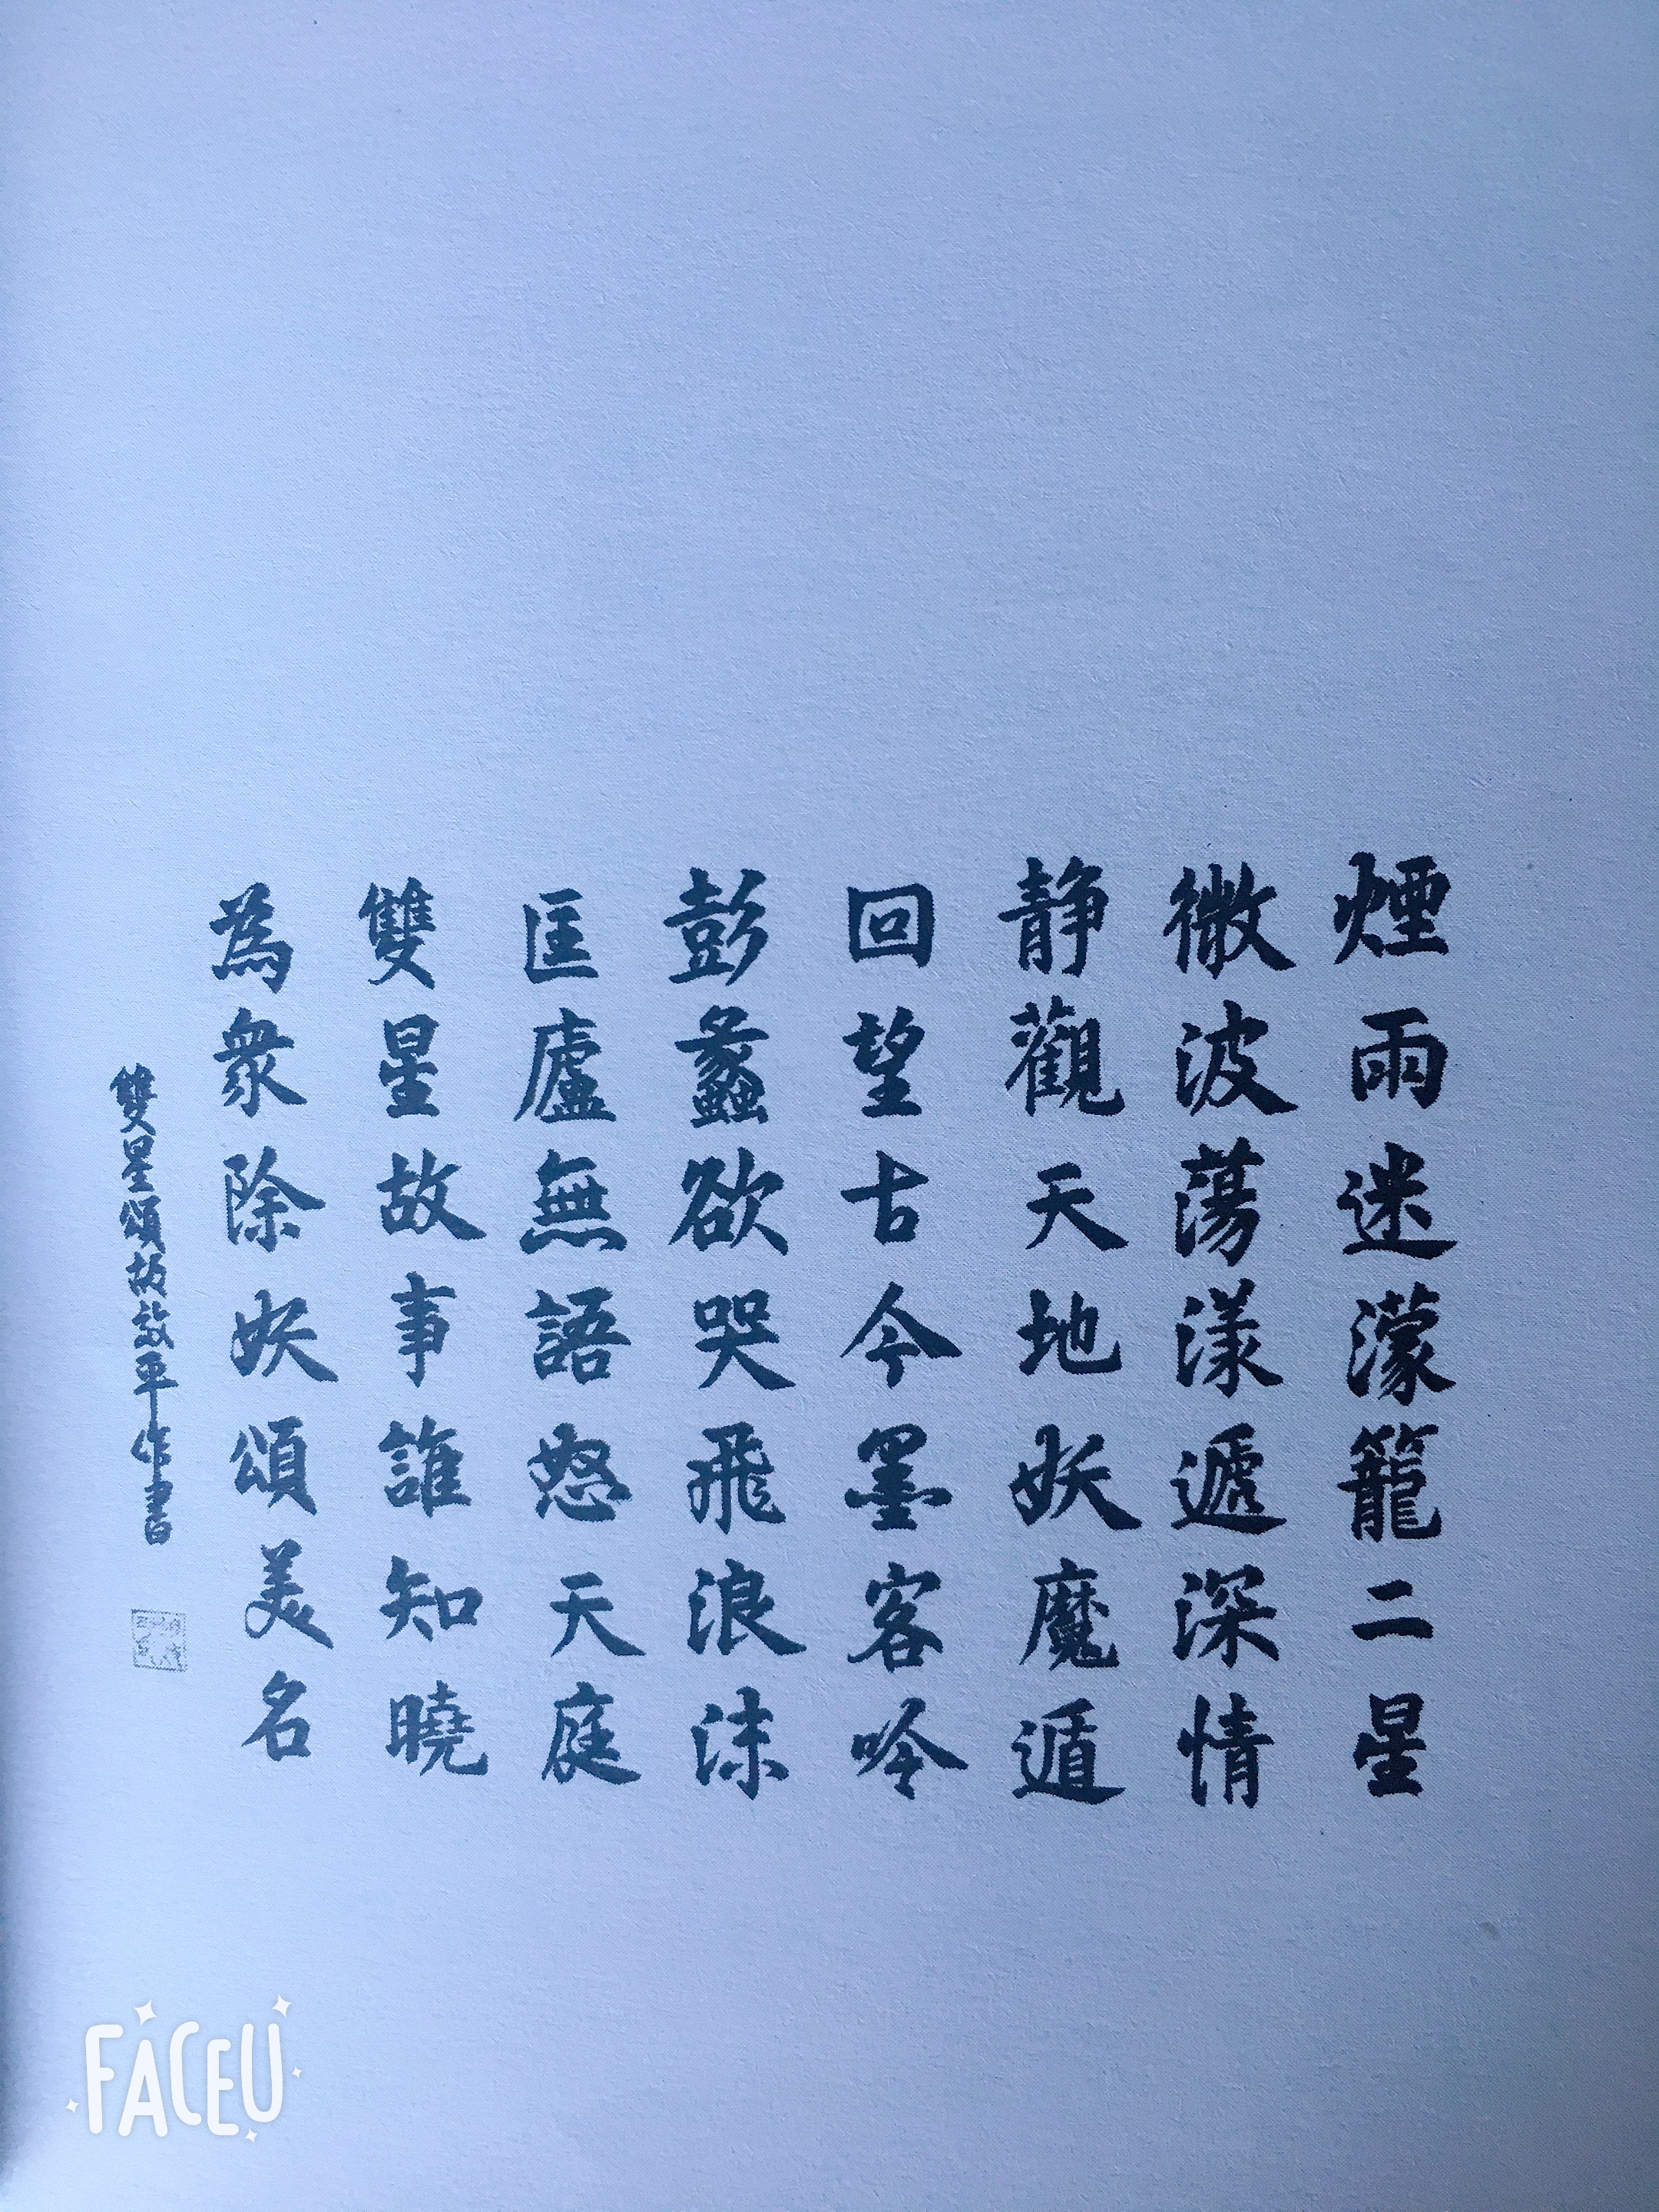 煙雨迷濛籠二星
微波蕩漾遞深情
静觀天地妖魔遁
回望古今墨客吟
彭蠡欲哭飛浪沫
匡廬無語怒天庭
雙星故事誰知曉
為衆除妖頌美名
雙星頌 平作書
FACEU